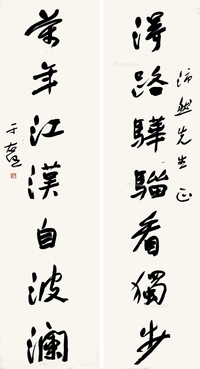 得路驊騮看獨步
先生正
當年江漢自波瀾
于右任